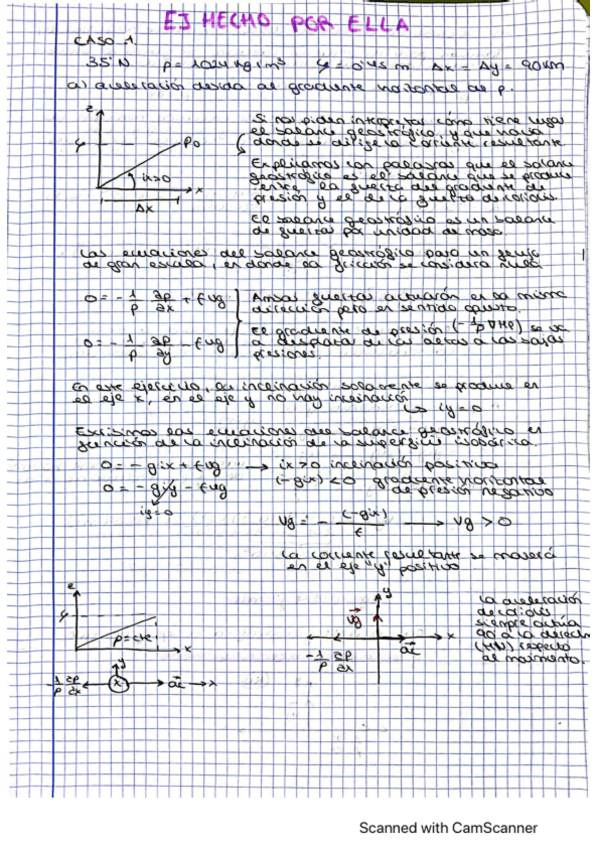 EJ HECHO POR ELLA
CASO 1
35°N ρ = 1024 kg/m³ φ = 0'45 m Δx = Δy = 90 km
a) aceleración debida al gradiente horizontal de p.
z
φ
P0
ix>0
x
Δx
Si nos piden interpretar cómo tiene lugar
el balance geostrófico, y que hacia
donde se dirige la corriente resultante
Explicamos con palabras que el balance
geostrófico es el balance que se produce
entre la fuerza del gradiente de
presión y el de la fuerza de Coriolis.
El balance geostrófico es un balance
de fuerzas por unidad de masa.
Las ecuaciones del balance geostrófico para un flujo
de gran escala, en donde la fricción se considera nula
0 = - 1/ρ ∂p/∂x + fvg
0 = - 1/ρ ∂p/∂y - fug
Ambas fuerzas actuarán en la misma
dirección pero en sentido opuesto.
El gradiente de presión (- 1/ρ ∇Hp) se va
a desplazar de las altas a las bajas
presiones.
En este ejercicio, la inclinación solamente se produce en
el eje x, en el eje y no hay inclinación
↳ iy = 0
Escribimos las ecuaciones del balance geostrófico en
función de la inclinación de la superficie isobárica.
0 = - gix + fvg → ix>0 inclinación positiva
0 = - giy - fug (-gix) < 0 gradiente horizontal
de presión negativo
iy=0
vg = - (-gix)/f → vg > 0
La corriente resultante se moverá
en el eje "y" positivo
z
φ
p = cte
x
y
- 1/ρ ∂p/∂x
x
ac
x
y
vg
x
- 1/ρ ∂p/∂x
ac
La aceleración
de Coriolis
siempre actúa
90° a la derech
(HN) respecto
al movimiento.
Scanned with CamScanner